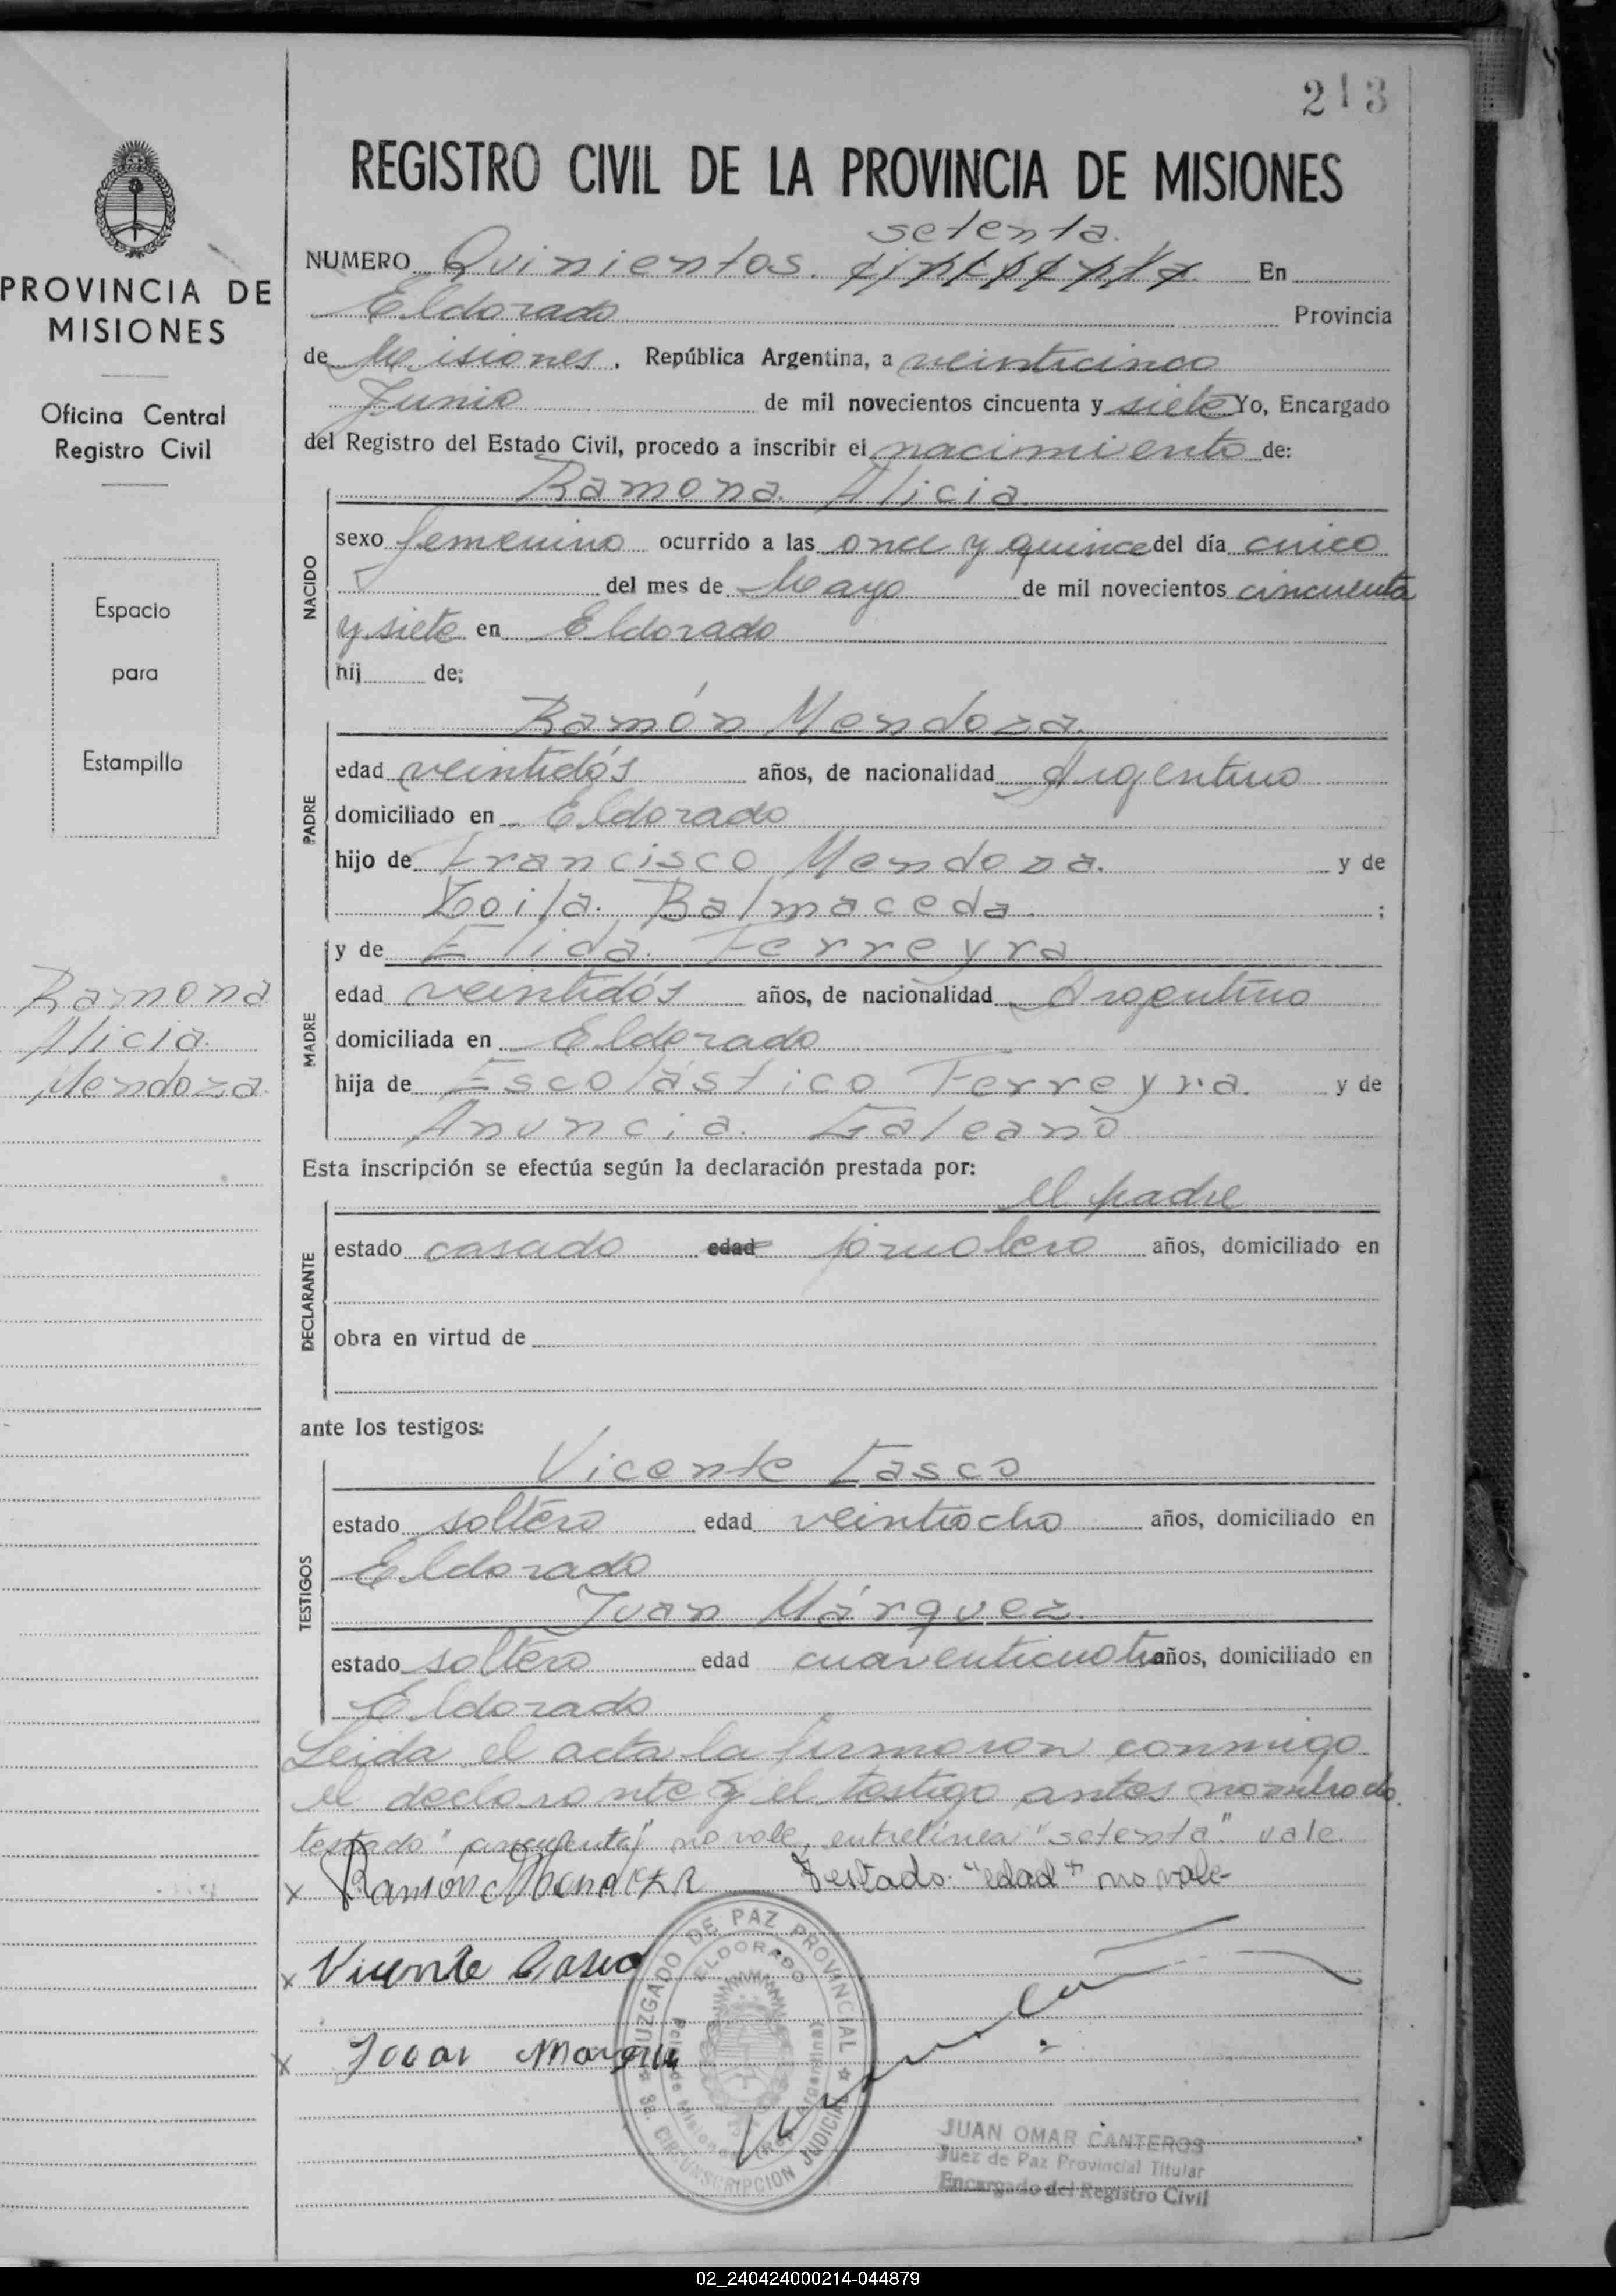 213
REGISTRO CIVIL DE LA PROVINCIA DE MISIONES
setenta.
NUMERO Quinientos. cincuenta En
Eldorado Provincia
de Misiones, República Argentina, a veinticinco
Junio de mil novecientos cincuenta y siete Yo, Encargado
del Registro del Estado Civil, procedo a inscribir el nacimiento de:
Ramona Alicia
NACIDO
sexo femenino ocurrido a las once y quince del día cinco
del mes de Mayo de mil novecientos cincuenta
y siete en Eldorado
hij de;
Ramón Mendoza.
PADRE
edad veintidós años, de nacionalidad Argentino
domiciliado en Eldorado
hijo de Francisco Mendoza. y de
Zoila Balmaceda. ;
MADRE
y de Elida Ferreyra
edad veintidós años, de nacionalidad Argentino
domiciliada en Eldorado
hija de Escolástico Ferreyra. y de
Anuncia Galeano
Esta inscripción se efectúa según la declaración prestada por:
el padre
DECLARANTE
estado casado edad jornalero años, domiciliado en
obra en virtud de
ante los testigos:
Vicente Casco
TESTIGOS
estado soltero edad veintiocho años, domiciliado en
Eldorado
Juan Márquez
estado soltero edad cuarenticuatro años, domiciliado en
Eldorado
Leida el acta la firmaron conmigo
el declarante y el testigo antes nombrado.
testado "cincuenta" no vale, entrelínea "setenta" vale.
x Ramón Mendoza Testado: "edad" no vale-
x Vicente Casco
x
JUZGADO DE PAZ PROVINCIAL
ELDORADO
Pcia. de Misiones (Rep. Argentina)
3a. CIRCUNSCRIPCION JUDICIAL
JUAN OMAR CANTEROS
Juez de Paz Provincial Titular
Encargado del Registro Civil
PROVINCIA DE
MISIONES
Oficina Central
Registro Civil
Espacio
para
Estampilla
Ramona
Alicia
Mendoza.
02_240424000214-044879